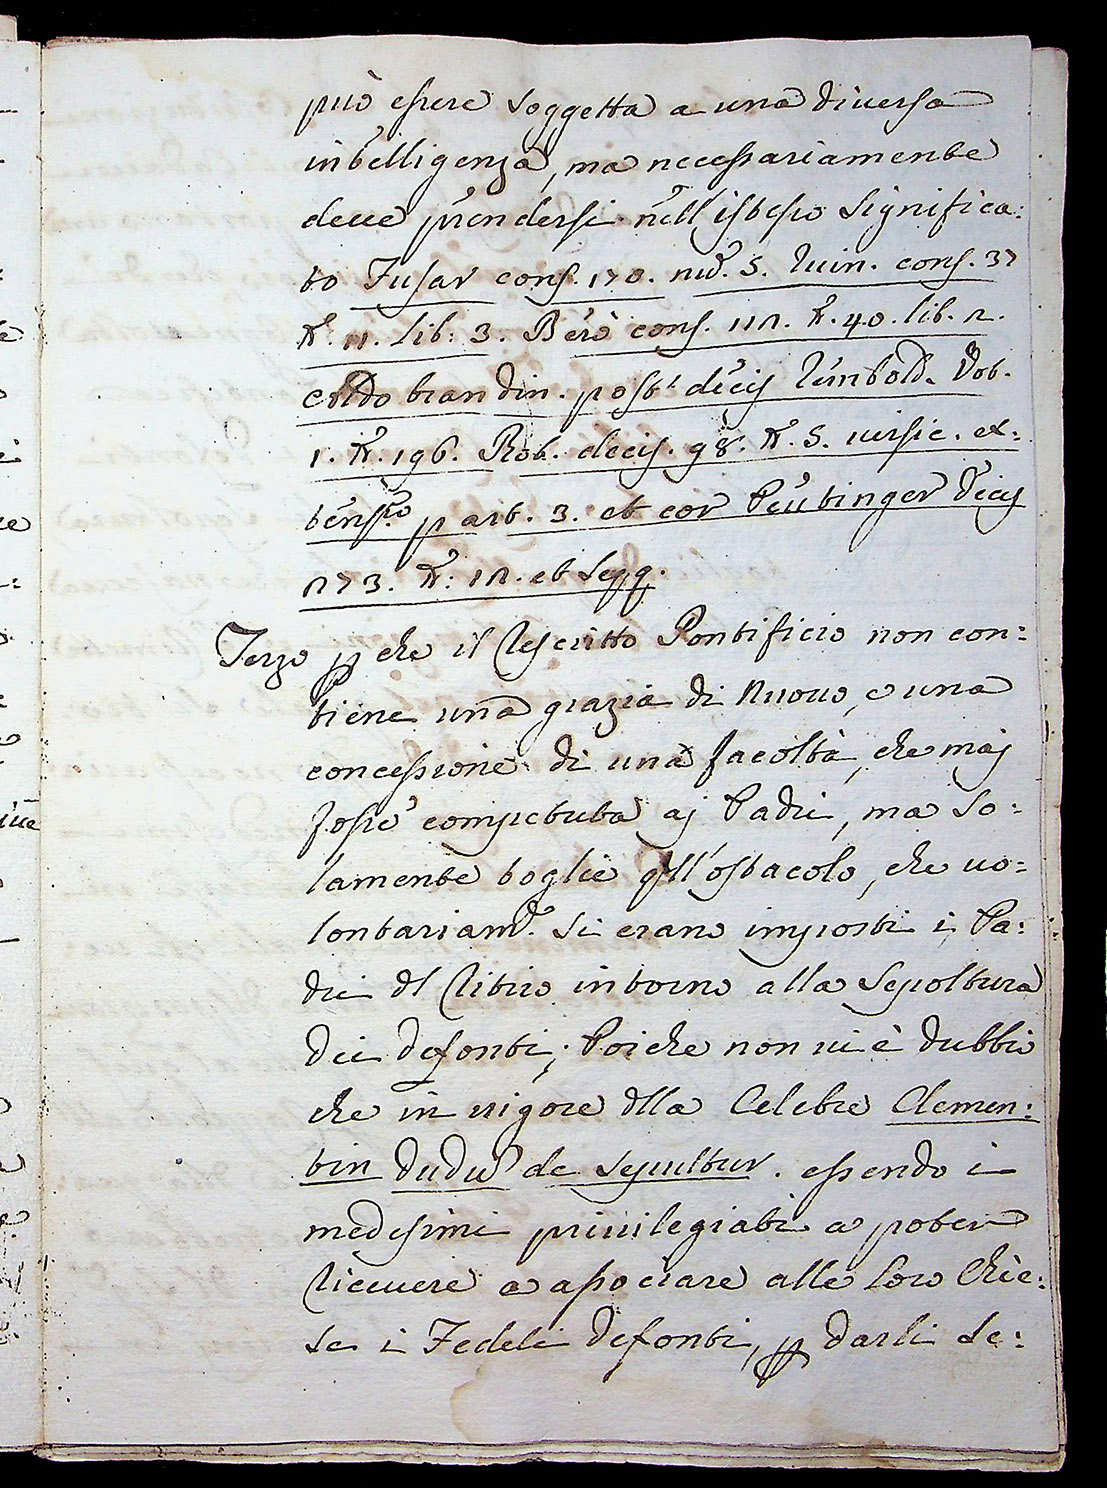 può essere soggetta a una diversa
intelligenza, ma necessariamente
deve prendersi nell'istesso significa:
to Fusar cons. 170. nu. 5. Ruin. cons. 37
n. 11. lib: 3. Berò cons. 112. n. 40. lib. 2.
Aldobrandin. post decis
1. n. 196. Rot. decis. 98. n. 5. versic. ex:
tens. p art. 3. et cor Peutinger Decis
273. n: 12. et seqq.
Terzo p che il Rescritto Pontificio non con:
tiene una grazia di nuovo, o una
concessione di una facoltà, che maj
fosse competuta aj Padri, ma so:
lamente toglie qll'ostacolo, che vo:
lontariam.e si erano imposti i Pa:
dri dl Ritiro intorno alla Sepoltura
dei defonti; Poiche non vi è dubbio
che in vigore dlla Celebre Clemen:
tin dudu de sepultur. essendo i
medesimi privilegiati a poter
ricevere e associare alle loro Chie:
se i Fedeli Defonti, p darli se: